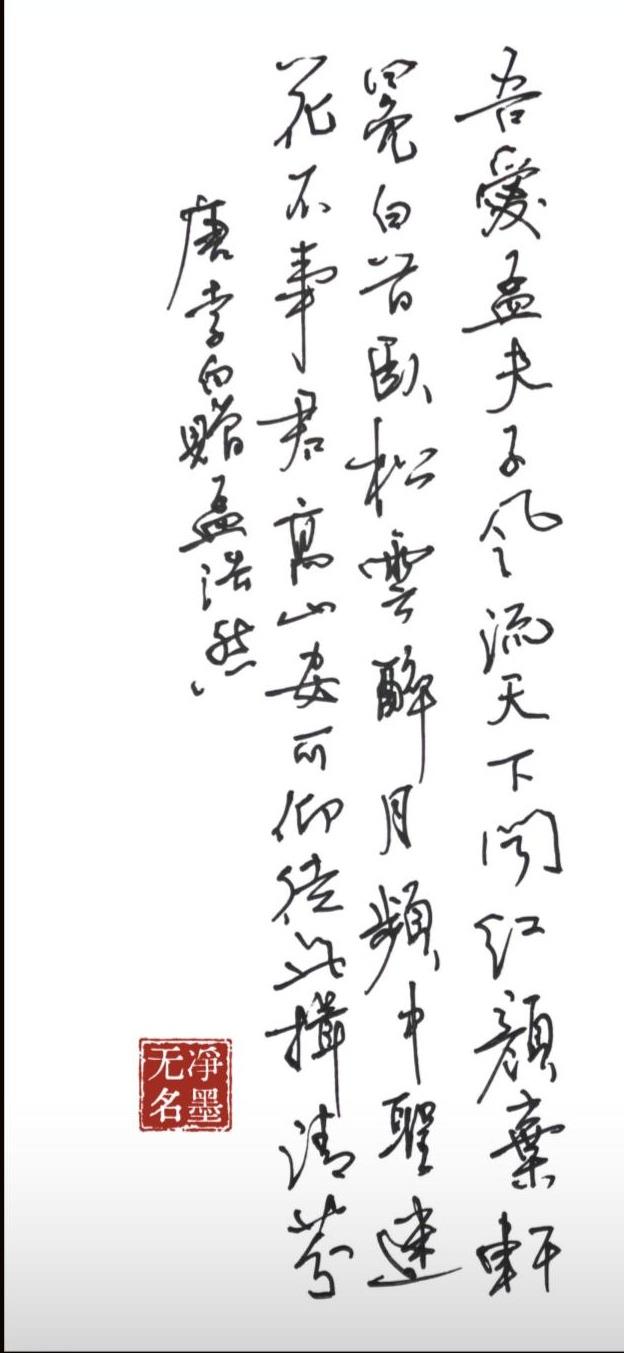 吾愛孟夫子風流天下聞紅顏棄軒
冕白首臥松雲醉月頻中聖迷
花不事君高山安可仰徒此揖清芬
唐李白贈孟浩然
凈墨
无名